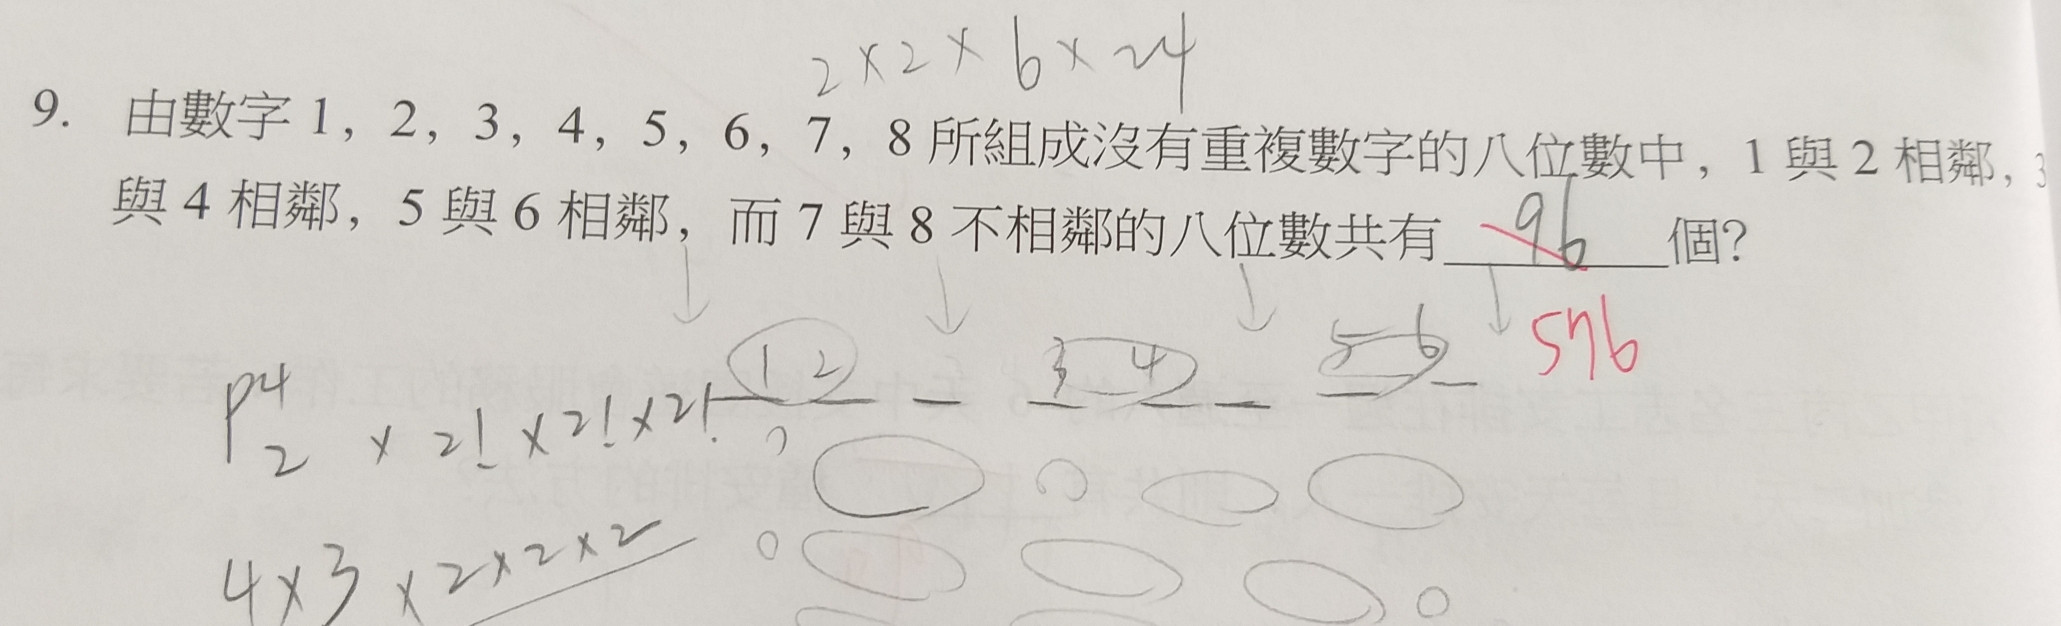 2×2×6×24
9. 由數字 1, 2, 3, 4, 5, 6, 7, 8 所組成沒有重複數字的八位數中, 1 與 2 相鄰, 3
與 4 相鄰, 5 與 6 相鄰, 而 7 與 8 不相鄰的八位數共有 96 個?
576
1 2 3 4 5 6
P⁴₂ × 2! × 2! × 2!
4×3×2×2×2